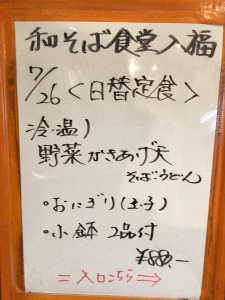 和そば食堂入福
7/26<日替定食>
冷・温)
野菜かきあげ天
そば・うどん
・おにぎり(玉子)
・小鉢 2品付
=入口こちら⇒